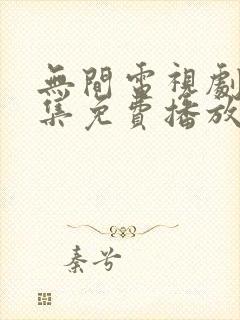 無間電視劇
集免費播放
秦兮